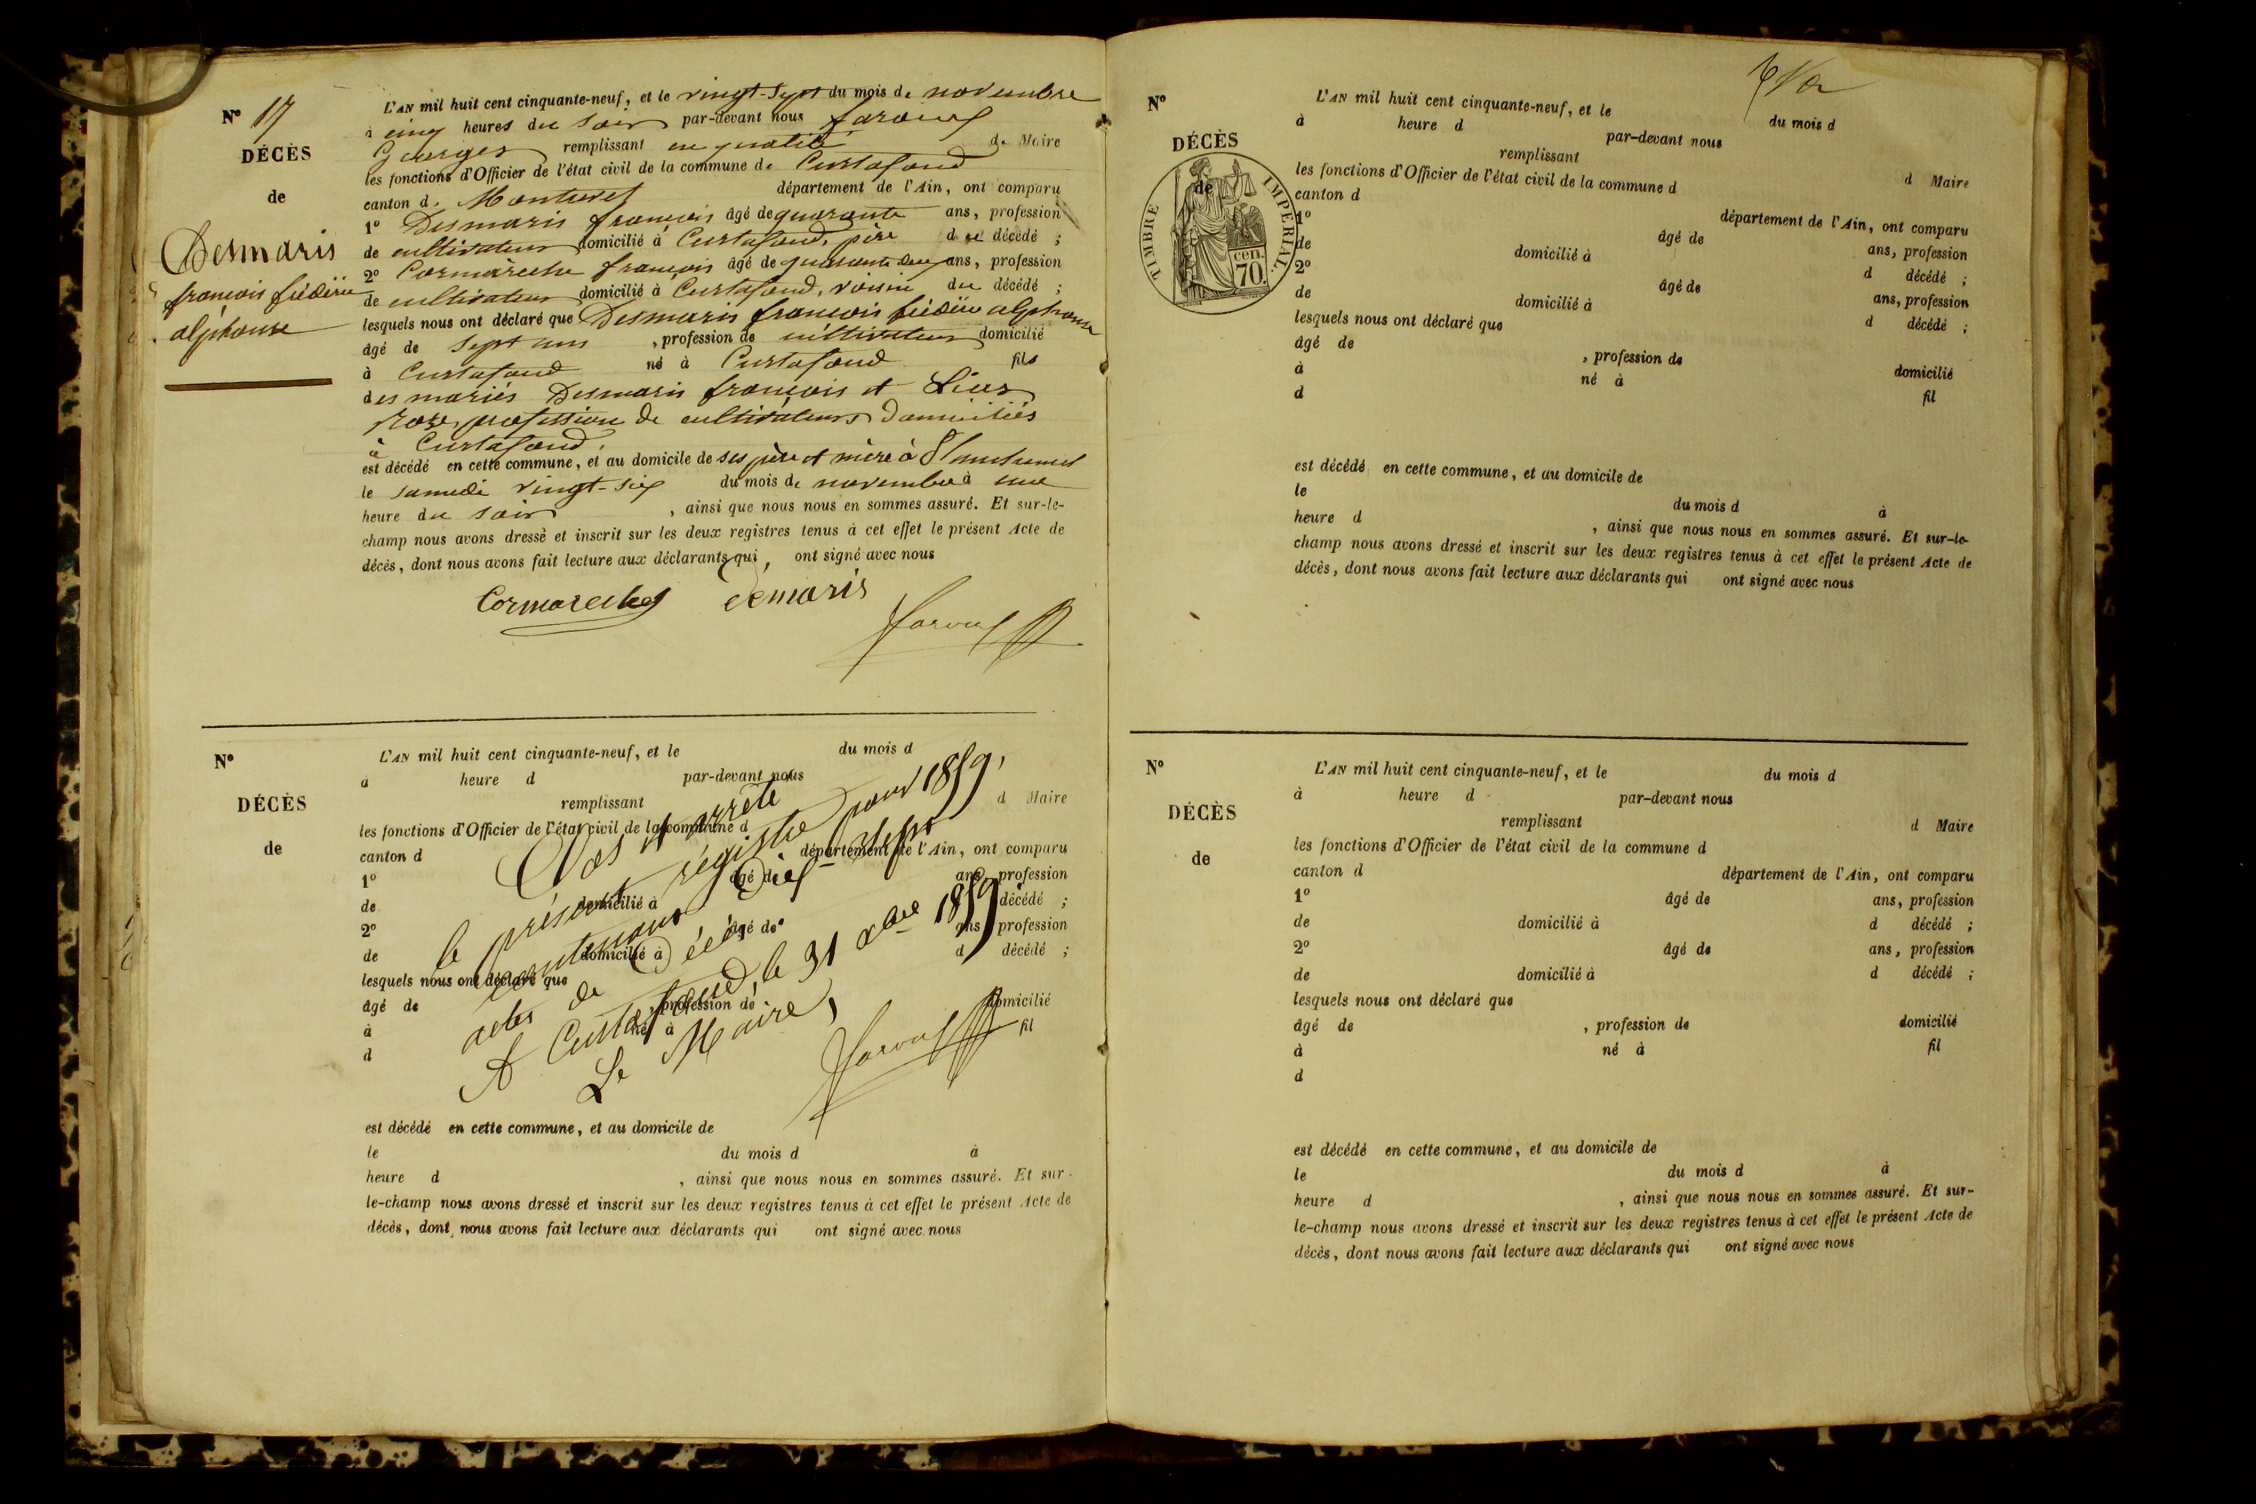 N° 17
DÉCÈS
de
Desmaris
françois frédéric
alphonse
L'AN mil huit cent cinquante-neuf, et le vingt-sept du mois de novembre
à cinq heures du soir par-devant nous
Georges remplissant en qualité de Maire
les fonctions d'Officier de l'état civil de la commune de Curtafond
canton de Montrevel département de l'Ain, ont comparu
1° Desmaris françois âgé de quarante ans, profession
de cultivateur domicilié à Curtafond, père du décédé ;
2° Cormarèche françois âgé de quarante ans, profession
de cultivateur domicilié à Curtafond, voisin du décédé ;
lesquels nous ont déclaré que Desmaris françois frédéric alphonse
âgé de sept ans , profession de cultivateur domicilié
à Curtafond né à Curtafond fils
des mariés Desmaris françois et
roze, profession de cultivateurs domiciliés
à Curtafond.
est décédé en cette commune, et au domicile de ses père et mère à
le samedi vingt-six du mois de novembre à une
heure du soir , ainsi que nous nous en sommes assuré. Et sur-le-
champ nous avons dressé et inscrit sur les deux registres tenus à cet effet le présent Acte de
décès, dont nous avons fait lecture aux déclarants qui, ont signé avec nous
Cormareche demaris
N°
DÉCÈS
de
L'AN mil huit cent cinquante-neuf, et le du mois d
à heure d par-devant nous
remplissant d Maire
les fonctions d'Officier de l'état civil de la commune d
canton d département de l'Ain, ont comparu
1° âgé de ans, profession
de domicilié à d décédé ;
2° âgé de ans, profession
de domicilié à d décédé ;
lesquels nous ont déclaré que
âgé de , profession de domicilié
à né à fil
d
Clos et arrêté
le présent régistre pour 1859,
contenant Dix-Sept
actes de Décès
A Curtafond, le 31 Xbre 1859
Le Maire,
est décédé en cette commune, et au domicile de
le du mois d à
heure d , ainsi que nous nous en sommes assuré. Et sur-
le-champ nous avons dressé et inscrit sur les deux registres tenus à cet effet le présent Acte de
décès, dont nous avons fait lecture aux déclarants qui ont signé avec nous
N°
DÉCÈS
de
TIMBRE IMPÉRIAL.
cen.
70.
L'AN mil huit cent cinquante-neuf, et le du mois d
à heure d par-devant nous
remplissant d Maire
les fonctions d'Officier de l'état civil de la commune d
canton d département de l'Ain, ont comparu
1° âgé de ans, profession
de domicilié à d décédé ;
2° âgé de ans, profession
de domicilié à d décédé ;
lesquels nous ont déclaré que
âgé de , profession de domicilié
à né à fil
d
est décédé en cette commune, et au domicile de
le du mois d à
heure d , ainsi que nous nous en sommes assuré. Et sur-le-
champ nous avons dressé et inscrit sur les deux registres tenus à cet effet le présent Acte de
décès, dont nous avons fait lecture aux déclarants qui ont signé avec nous
N°
DÉCÈS
de
L'AN mil huit cent cinquante-neuf, et le du mois d
à heure d par-devant nous
remplissant d Maire
les fonctions d'Officier de l'état civil de la commune d
canton d département de l'Ain, ont comparu
1° âgé de ans, profession
de domicilié à d décédé ;
2° âgé de ans, profession
de domicilié à d décédé ;
lesquels nous ont déclaré que
âgé de , profession de domicilié
à né à fil
d
est décédé en cette commune, et au domicile de
le du mois d à
heure d , ainsi que nous nous en sommes assuré. Et sur-
le-champ nous avons dressé et inscrit sur les deux registres tenus à cet effet le présent Acte de
décès, dont nous avons fait lecture aux déclarants qui ont signé avec nous